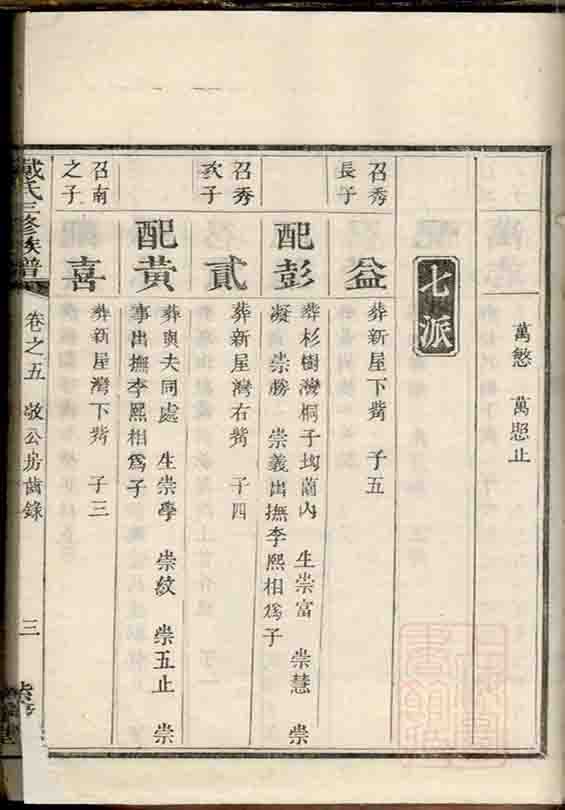 萬慜 萬愳止
七派
召秀長子
益
葬新屋下嘴 子五
配彭
葬杉樹灣桐子坳蘭內 生崇富 崇慧 崇
凝 崇勝 崇義出撫李熙相爲子
召秀次子
貳
葬新屋灣右嘴 子四
配黃
葬與夫同處 生崇學 崇紋 崇五止 崇
事出撫李熙相爲子
召南之子
喜
葬新屋灣下嘴 子三
戴氏三修族譜
卷之五 敬公房齒錄
三